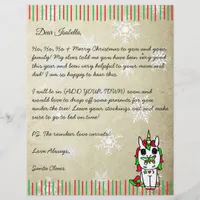 Dear Isabella,
Ho, Ho, Ho & Merry Christmas to you and your
family! My elves told me you have been very good
this year and been very helpful to your mom and
dad. I am so happy to hear this.
I will be in (ADD YOUR TOWN) soon and
would love to drop off some presents for you
under the tree! Leave your stockings out and make
sure to go to bed on time!
P.S. The reindeer love carrots!
Love Always,
Santa Claus